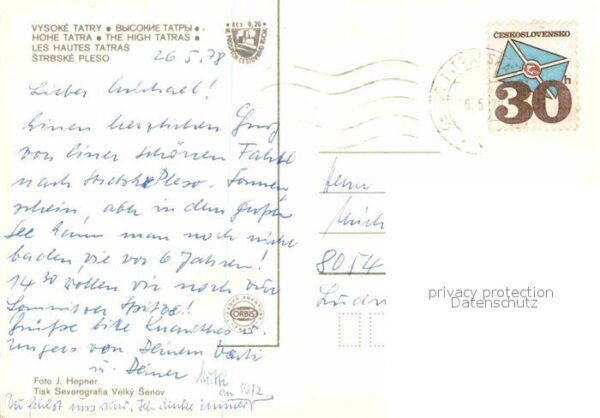 VYSOKÉ TATRY • ВЫСОКИЕ ТАТРЫ •
HOHE TATRA • THE HIGH TATRAS •
LES HAUTES TATRAS
ŠTRBSKÉ PLESO
Kčs 0,20
26 5. 78
ČESKOSLOVENSKO
30h
Lieber Michael!
Einen herzlichen Gruß
von einer schönen Fahrt
nach Strbske Pleso. Sonnen
schein, aber in dem großen
See kann man noch nicht
baden, wie vor 6 Jahren!
14 30 wollen wir noch zur
Lomnitzer Spitze!
Grüße bitte
von Deinem Vati
u. Deiner
1972
Herrn
8054
ORBIS
privacy protection
Datenschutz
Foto J. Hepner
Tisk Severografia Velký Šenov
Du fehlst uns sehr. Ich denke immer